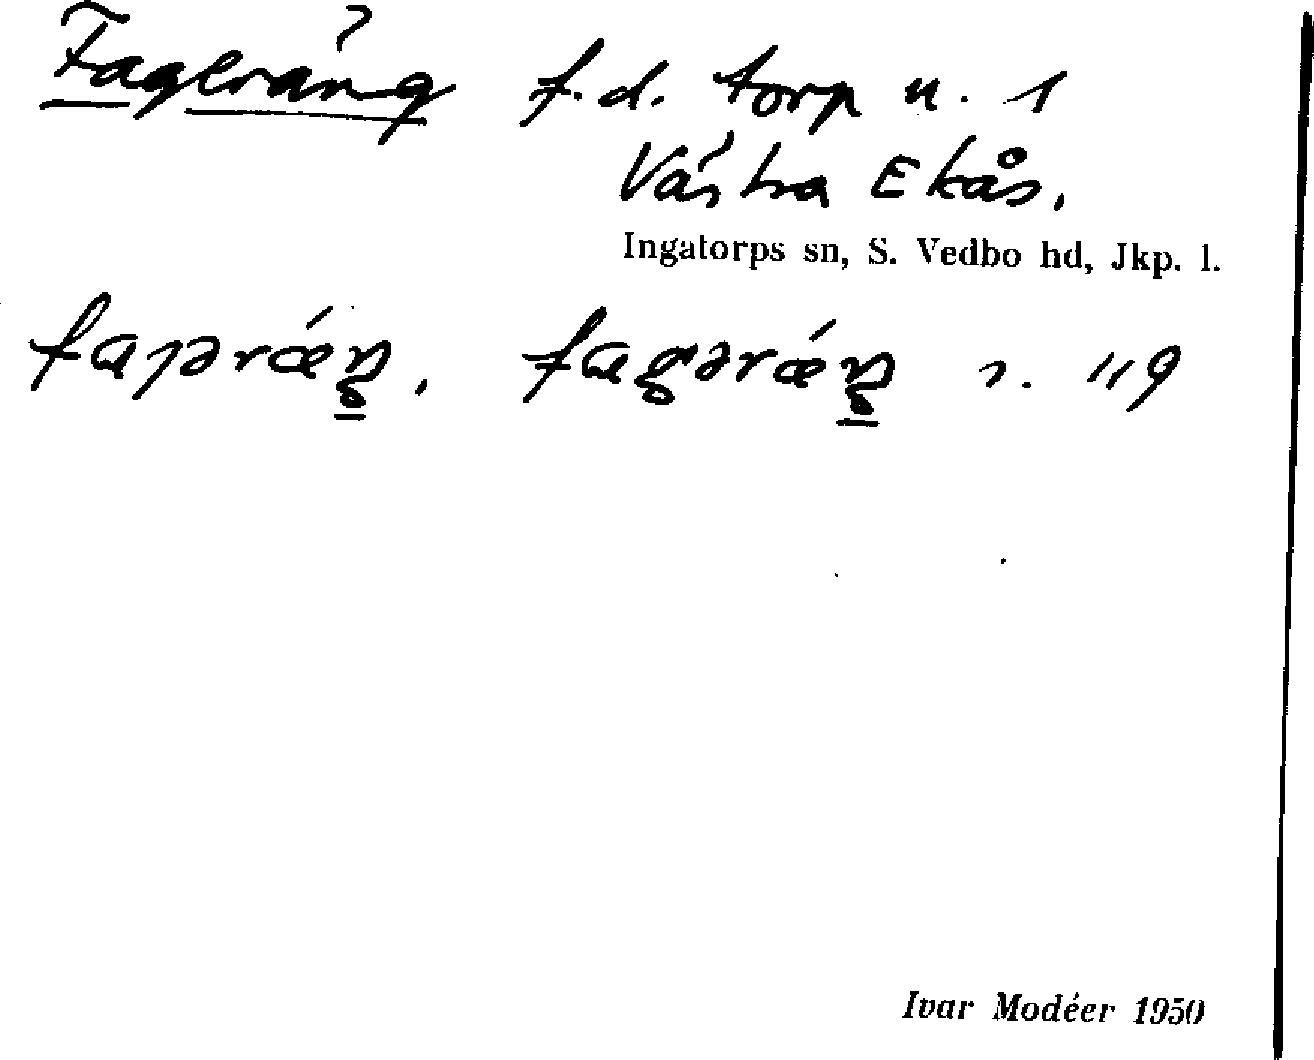 Fageräng f.d. torp u. 1
Västra Ekås.
Ingatorps sn, S. Vedbo hd, Jkp. l.
s. 119
Ivar Modéer 1950